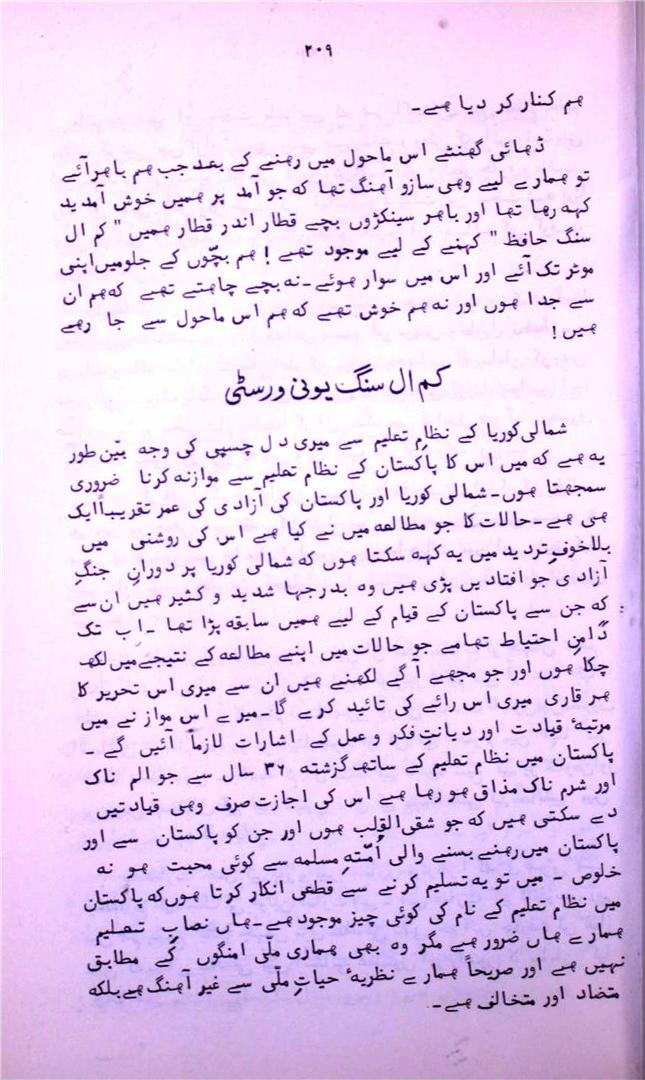 ۲۰۹
ھم کنار کر دیا ھے۔
ڈھائی گھنٹے اس ماحول میں رھنے کے بعد جب ھم باھر آئے
تو ھمارے لیے وھی ساز و آھنگ تھا کہ جو آمد پر ھمیں خوش آمدید
کہہ رھا تھا اور باھر سینکڑوں بچے قطار اندر قطار ھمیں "کم ال
سنگ حافظ" کہنے کے لیے موجود تھے! ھم بچّوں کے جلو میں اپنی
موٹر تک آئے اور اس میں سوار ھوئے۔ نہ بچے چاھتے تھے کہ ھم ان
سے جدا ھوں اور نہ ھم خوش تھے کہ ھم اس ماحول سے جا رھے
ھیں!
کم ال سنگ یونی ورسٹی
شمالی کوریا کے نظامِ تعلیم سے میری دل چسپی کی وجہ بیّن طور
یہ ھے کہ میں اس کا پاکستان کے نظام تعلیم سے موازنہ کرنا ضروری
سمجھتا ھوں۔ شمالی کوریا اور پاکستان کی آزادی کی عمر تقریباً ایک
ھی ھے۔ حالات کا جو مطالعہ میں نے کیا ھے اس کی روشنی میں
بلاخوفِ تردید میں یہ کہہ سکتا ھوں کہ شمالی کوریا پر دورانِ جنگِ
آزادی جو افتادیں پڑی ھیں وہ بدرجہا شدید و کثیر ھیں ان سے
کہ جن سے پاکستان کے قیام کے لیے ھمیں سابقہ پڑا تھا۔ اب تک
دامنِ احتیاط تھامے جو حالات میں اپنے مطالعہ کے نتیجے میں لکھ
چکا ھوں اور جو مجھے آگے لکھنے ھیں ان سے میری اس تحریر کا
ھر قاری میری اس رائے کی تائید کرے گا۔ میرے اس موازنے میں
مرتبۂ قیادت اور دیانتِ فکر و عمل کے اشارات لازماً آئیں گے۔
پاکستان میں نظام تعلیم کے ساتھ گزشتہ ۳۶ سال سے جو الم ناک
اور شرم ناک مذاق ھو رھا ھے اس کی اجازت صرف وھی قیادتیں
دے سکتی ھیں کہ جو شقی القلب ھوں اور جن کو پاکستان سے اور
پاکستان میں رھنے بسنے والی اُمّتہِ مسلمہ سے کوئی محبت ھو نہ
خلوص۔ میں تو یہ تسلیم کرنے سے قطعی انکار کرتا ھوں کہ پاکستان
میں نظام تعلیم کے نام کی کوئی چیز موجود ھے۔ ھاں نصابِ تعلیم
ھمارے ھاں ضرور ھے مگر وہ بھی ھماری ملّی امنگوں کے مطابق
نہیں ھے اور صریحاً ھمارے نظریۂ حیاتِ ملّی سے غیر آھنگ ھے بلکہ
متضاد اور متخالف ھے۔